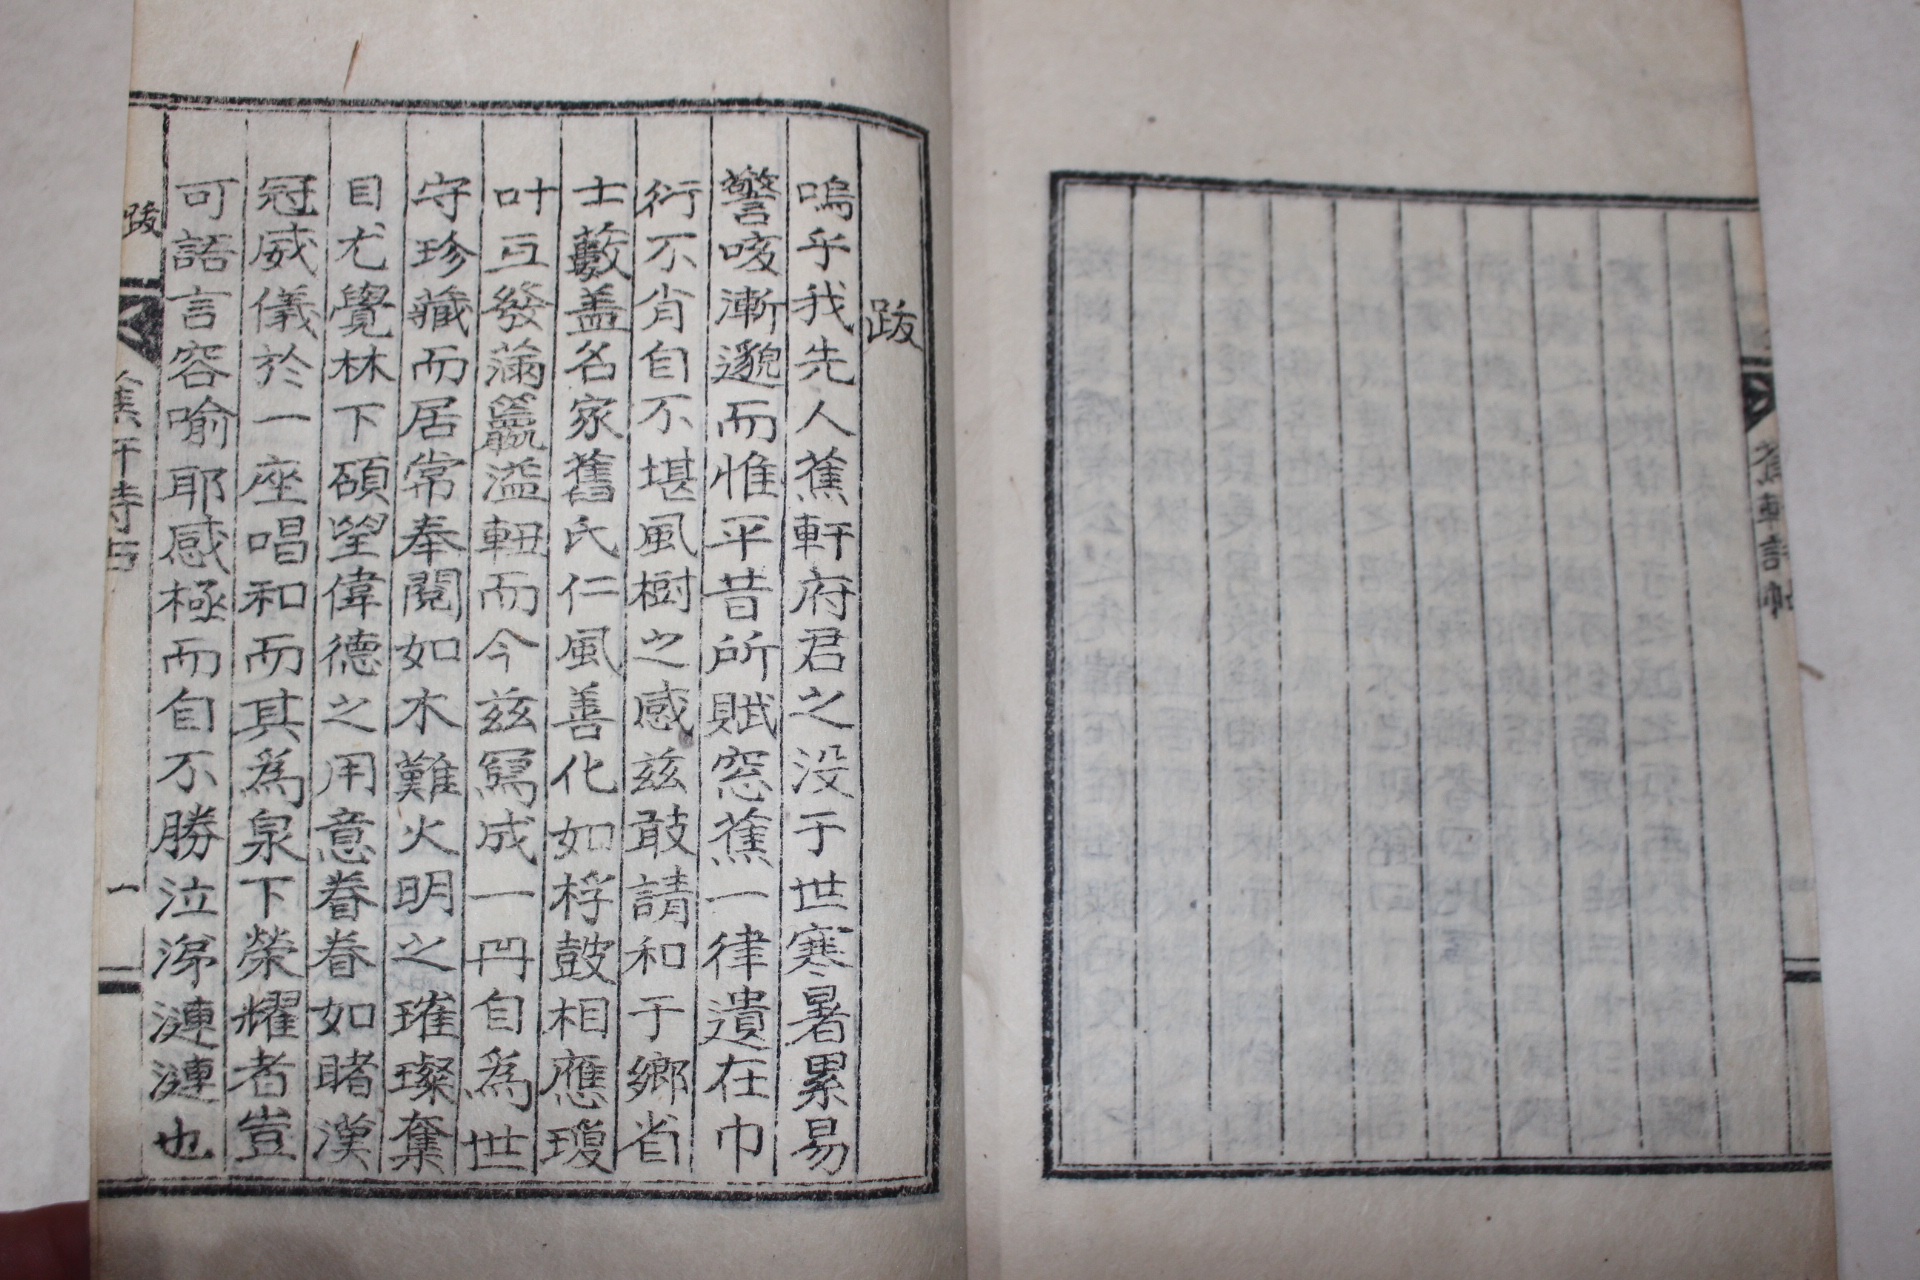 蕉軒詩帖
跋
嗚乎我先人蕉軒府君之没于世寒暑累易
謦咳漸邈而惟平昔所賦窓蕉一律遺在巾
衍不肖自不堪風樹之感玆敢請和于鄉省
士藪盖名家舊氏仁風善化如桴皷相應瓊
叶亙發滿籯溢軸而今玆寫成一冊自爲世
守珍藏而居常奉閱如木難火明之璀璨奪
目尤覺林下碩望偉德之用意眷眷如睹漢
冠威儀於一座唱和而其爲泉下榮耀者豈
可語言容喻耶感極而自不勝泣涕漣漣也
跋
一